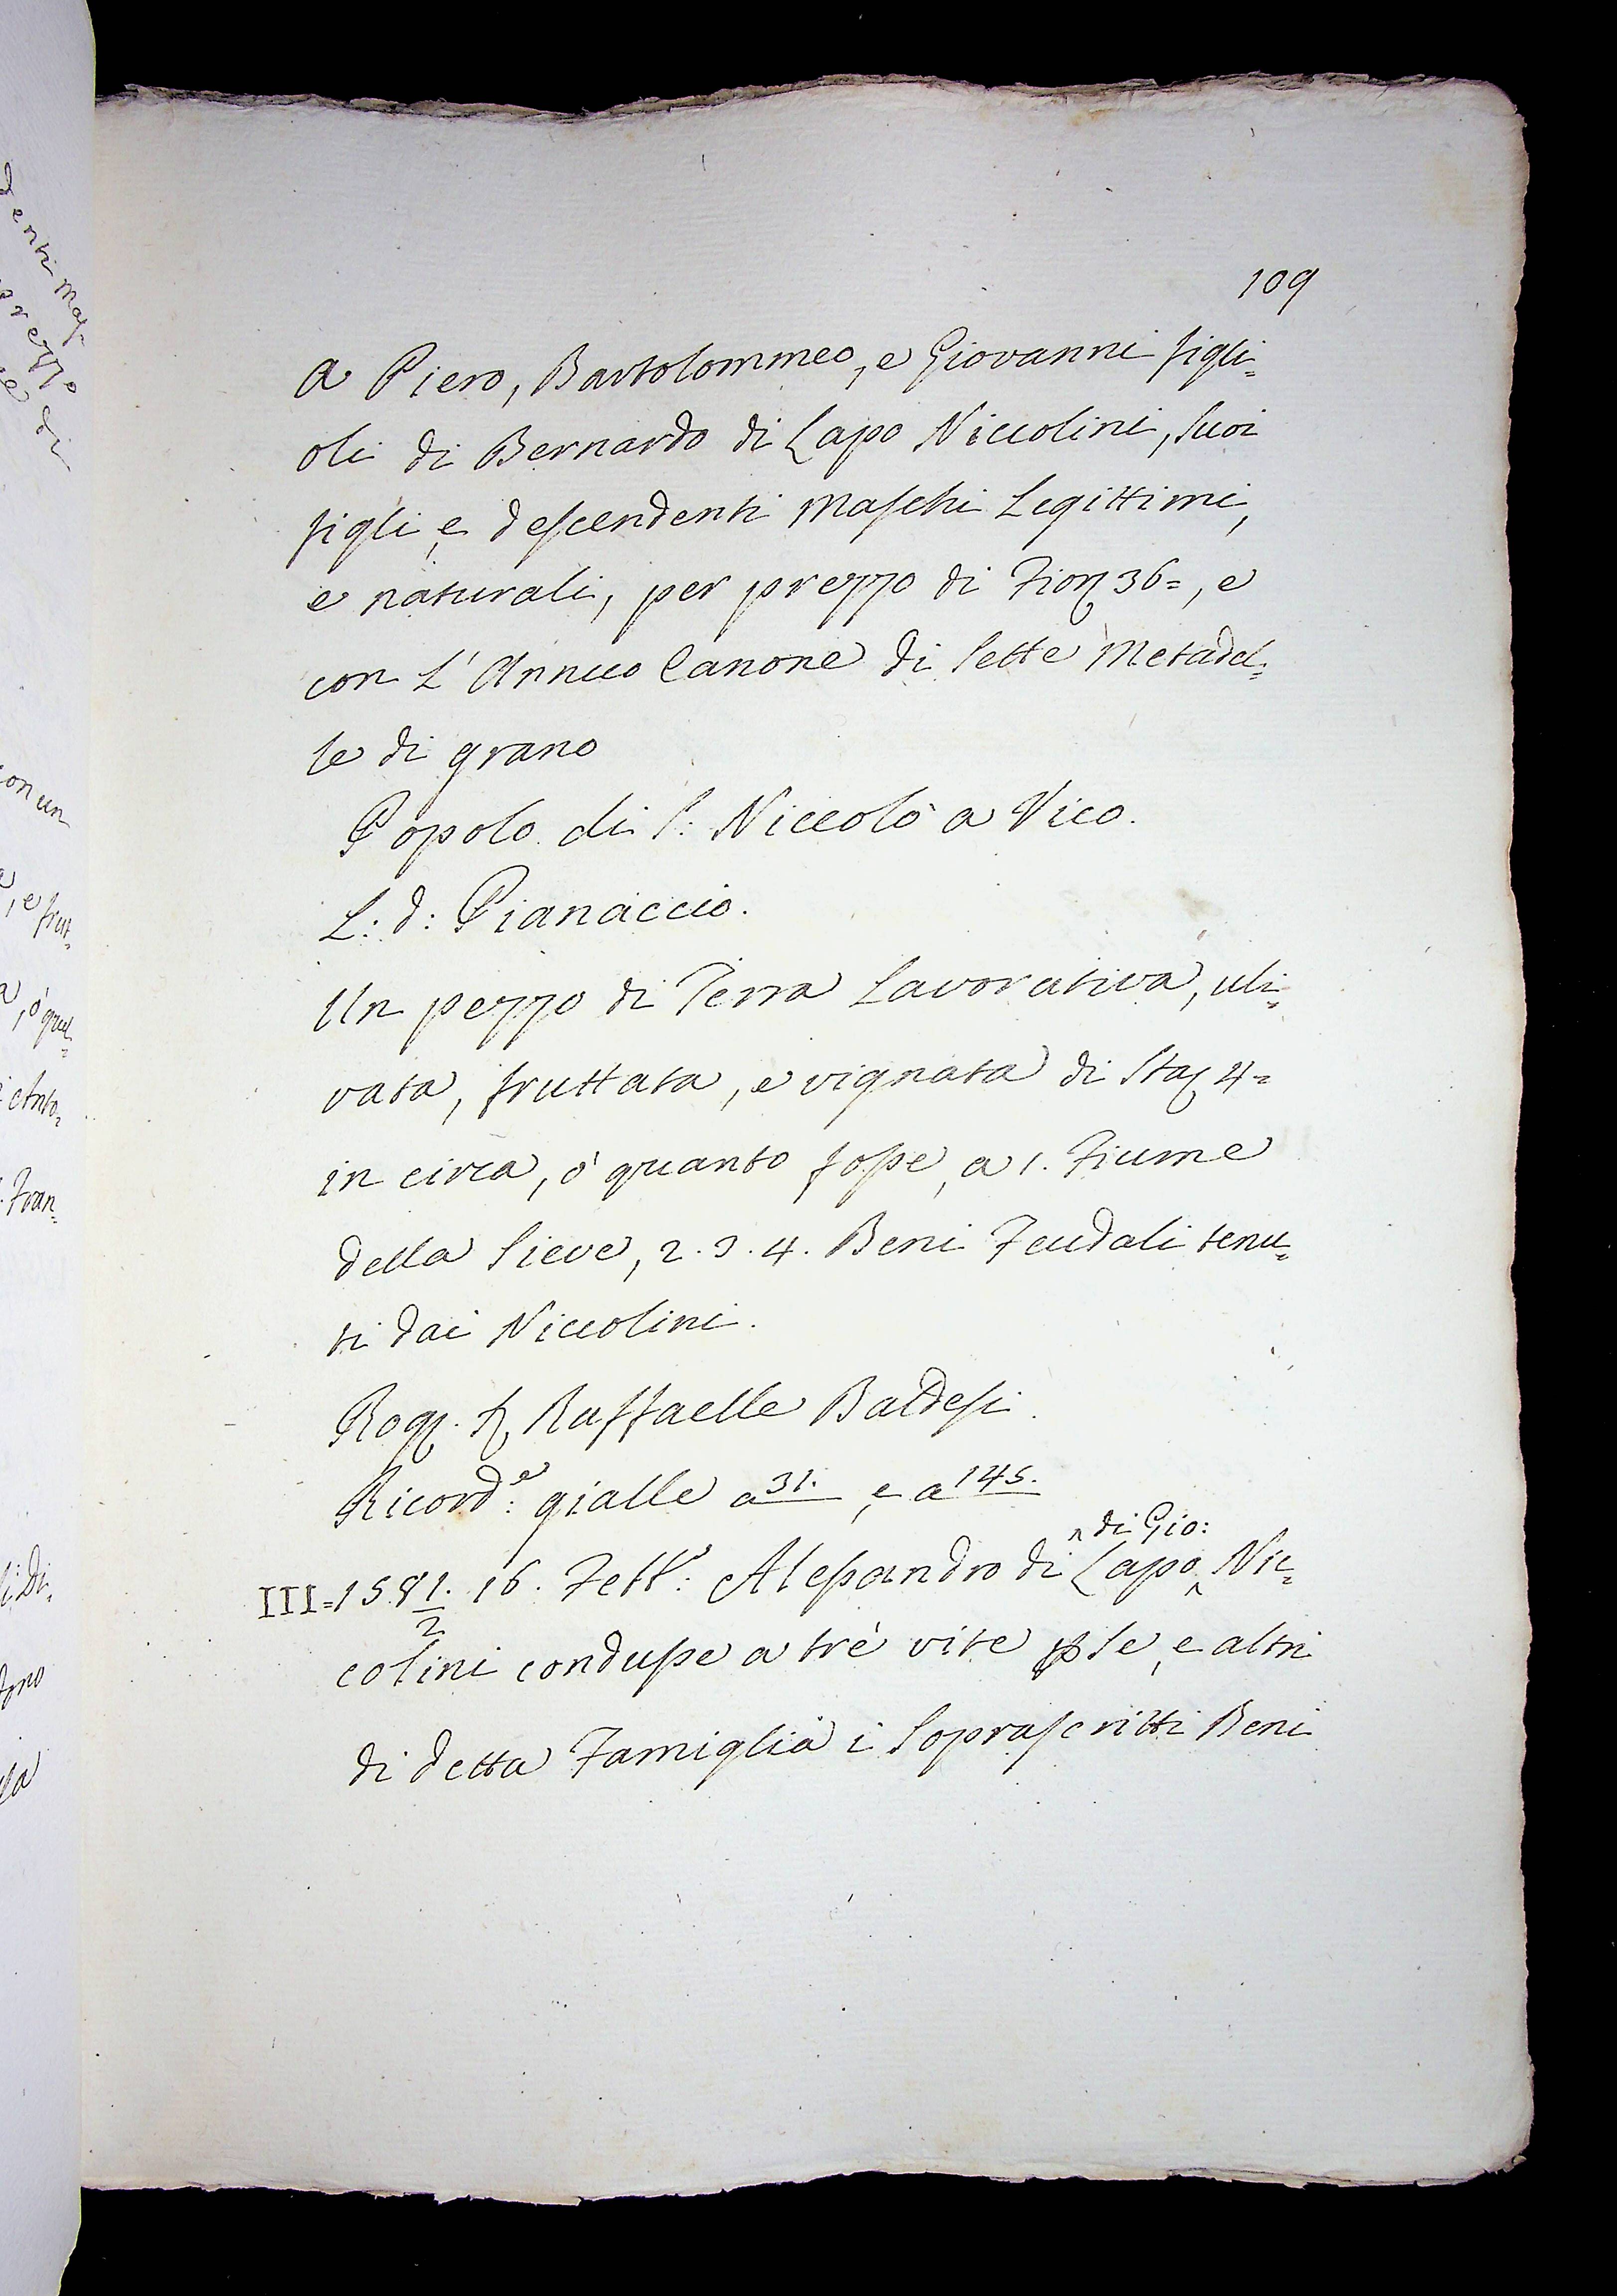 109
a Piero, Bartolommeo, e Giovanni figli=
oli di Bernardo di Lapo Niccolini, suoi
figli, e descendenti Maschi Legittimi,
e naturali, per prezzo di Fior. 36=, e
con L'Annuo Canone di sette Metadel=
le di grano
Popolo di S: Niccolò a Vico.
L: d: Pianaccio.
Un pezzo di Terra Lavorativa, uli=
vata, fruttata, e vignata di Sta. 4=
in circa, ò quanto fosse, a 1. Fiume
della Sieve, 2. 3. 4. Beni Feudali tenu=
ti dai Niccolini.
Rog. Raffaelle Baldesi.
Ricord:e gialle a 31. e a 145.
III=1581/2. 16. Febb:o Alessandro di Lapo ^di Gio: Nic=
colini condusse a trè vite p se, e altri
di detta Famiglia i Soprascritti Beni